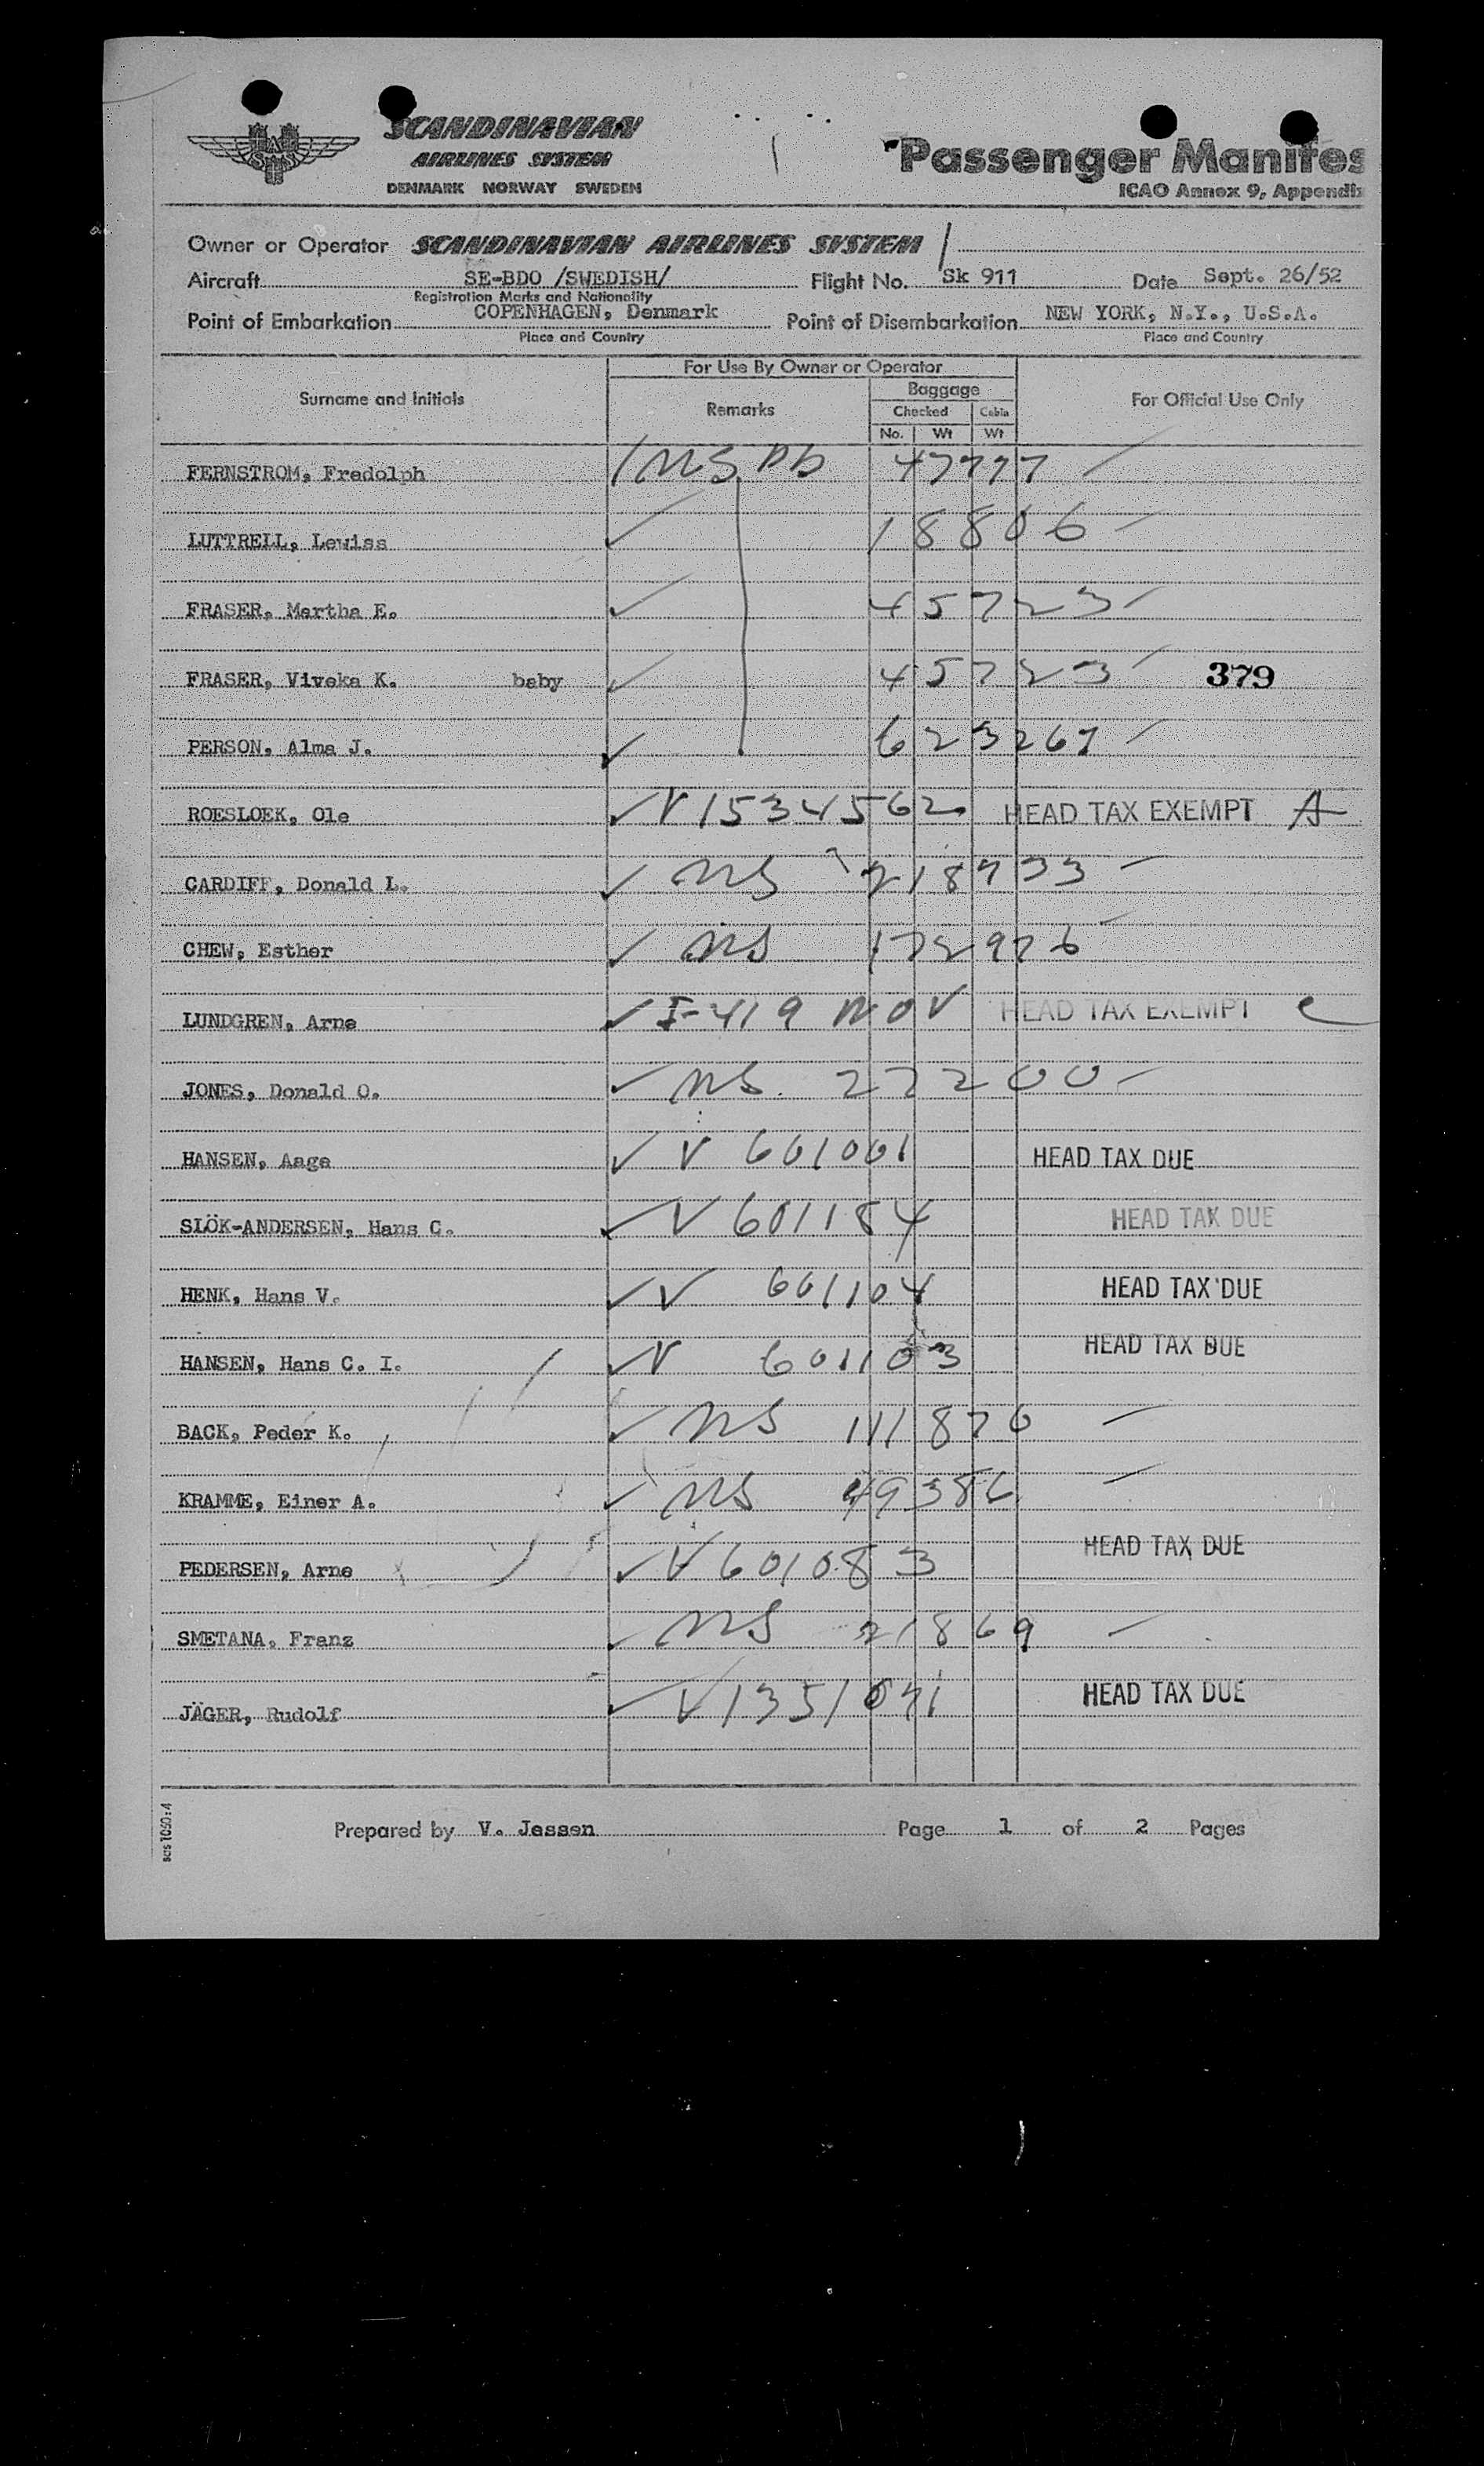 SCANDINAVIAN
AIRLINES SYSTEM
DENMARK NORWAY SWEDEN
Passenger Manifes
ICAO Annex 9, Appendix
Owner or Operator SCANDINAVIAN AIRLINES SYSTEM
Aircraft SE-BDO /SWEDISH/ Flight No. Sk 911 Date Sept. 26/52
Registration Marks and Nationality
Point of Embarkation COPENHAGEN, Denmark Point of Disembarkation NEW YORK, N.Y., U.S.A.
Place and Country Place and Country
For Use By Owner or Operator
Surname and Initials Remarks Baggage For Official Use Only
Checked Cabin
No. Wt Wt
FERNSTROM, Fredolph 47777
LUTTRELL, Lewiss 18806
FRASER, Martha E. 45723
FRASER, Viveka K. baby 45723 379
PERSON, Alma J. 623267
ROESLOEK, Ole V 1534562 HEAD TAX EXEMPT A
CARDIFF, Donald L. NS 218733
CHEW, Esther NS 172976
LUNDGREN, Arne I-419 NOV HEAD TAX EXEMPT C
JONES, Donald O. NS 27200
HANSEN, Aage V 601001 HEAD TAX DUE
SLÖK-ANDERSEN, Hans C. V 601184 HEAD TAX DUE
HENK, Hans V. V 601104 HEAD TAX DUE
HANSEN, Hans C. I. V 601103 HEAD TAX DUE
BACK, Peder K. NS 111876
KRAMME, Einer A. NS 49386
PEDERSEN, Arne V 601083 HEAD TAX DUE
SMETANA, Franz NS 21869
JÄGER, Rudolf V 1351071 HEAD TAX DUE
sas 1050:4
Prepared by V. Jessen Page 1 of 2 Pages